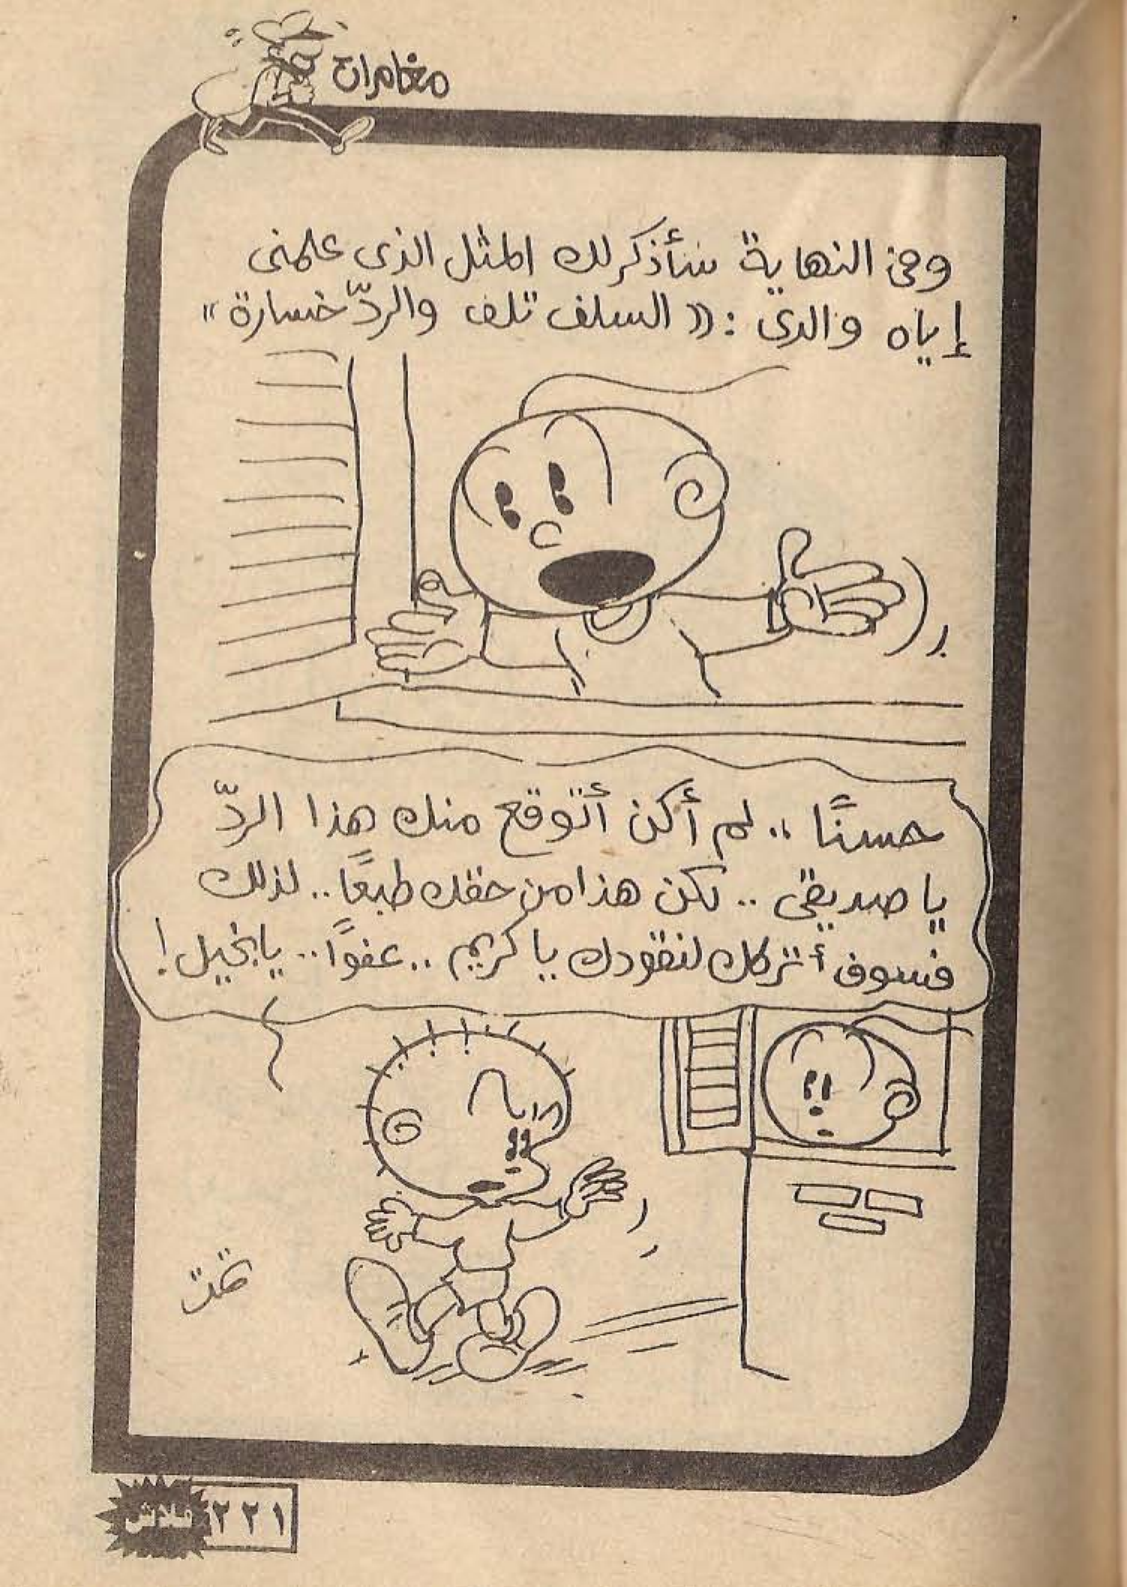 مغامرات
وفى النهاية سأذكر لك المثل الذى علمنى
إياه والدى : « السلف تلف والردّ خسارة »
حسنًا .. لم أكن أتوقع منك هذا الردّ
يا صديقى .. لكن هذا من حقك طبعًا .. لذلك
فسوف أتركك لنقودك يا كريم .. عفوًا .. يا بخيل !
تمت
٢٢١
فلاش